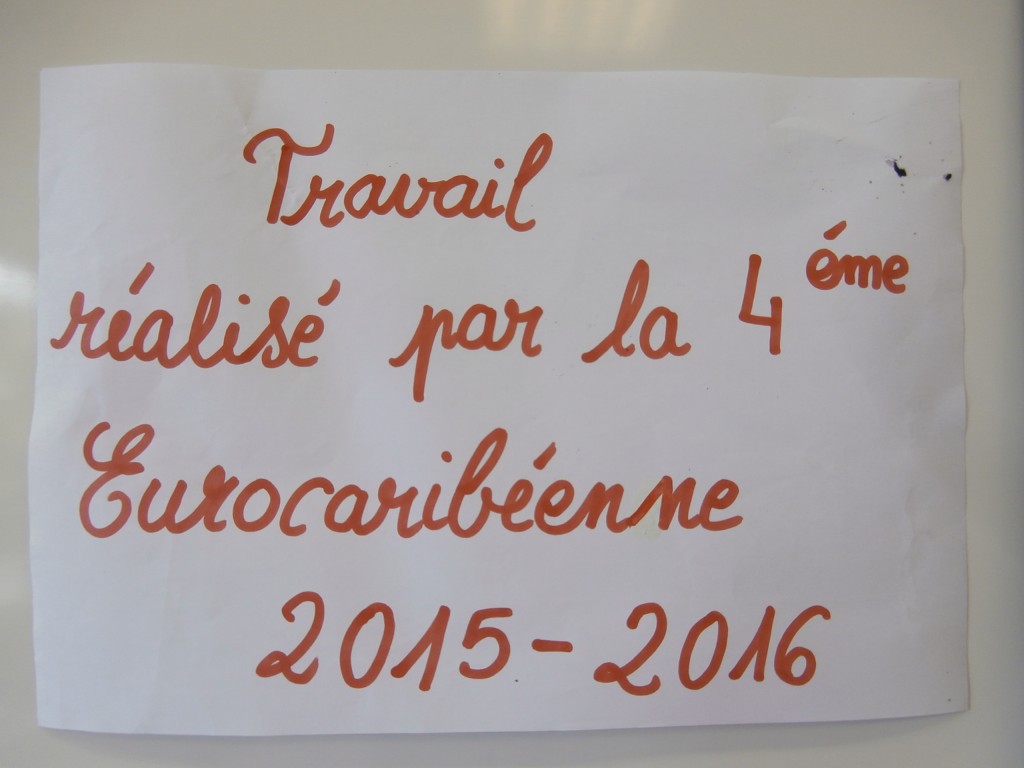 Travail
réalisé par la 4 éme
Eurocaribéenne
2015-2016